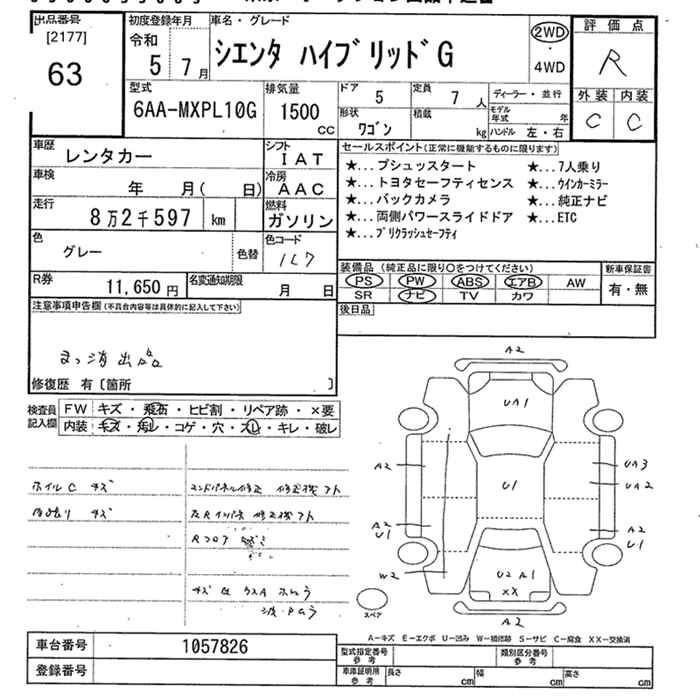 出品番号
[2177]
63
初度登録年月
令和
5 7月
車名・グレード
シエンタ ハイブリッドG
2WD
4WD
評価点
R
外装 内装
C C
型式
6AA-MXPL10G
排気量
1500 cc
ドア 5
定員 7 人
形状 ワゴン
積載 kg
ディーラー・並行
モデル年式 年
ハンドル 左・右
車歴 レンタカー
シフト IAT
車検 年 月( 日)
冷房 AAC
走行 8万2千597 km
燃料 ガソリン
色 グレー
色替
色コード 1L7
R券 11,650円
名変通知期限 月 日
セールスポイント(正常に機能するものに限ります)
★...プシュッスタート ★...7人乗り
★...トヨタセーフティセンス ★...ウインカーミラー
★...バックカメラ ★...純正ナビ
★...両側パワースライドドア ★...ETC
★...プリクラッシュセーフティ
装備品(純正品に限り○をつけてください)
PS PW ABS エアB AW
SR ナビ TV カワ
新車保証書
有・無
後日品
注意事項申告欄(不具合内容等は具体的に記入して下さい)
まっ消出品
修復歴 有〔箇所 〕
検査員記入欄
FW キズ・飛石・ヒビ割・リペア跡・×要
内装 キズ・汚レ・コゲ・穴・スレ・キレ・破レ
ホイルC キズ
キズ
修正機アト
修正機アト
Rフロア
A2
UA1
A2
UA3
U1
UA2
A2
U1
A2
U1
W2
U2 A1
XX
A2
スペア
A-キズ E-エクボ U-凹み W-補修跡 S-サビ C-腐食 XX-交換済
車台番号 1057826
登録番号
型式指定番号 参考
類別区分番号 参考
車庫証明用 参考
長さ cm
幅 cm
高さ cm